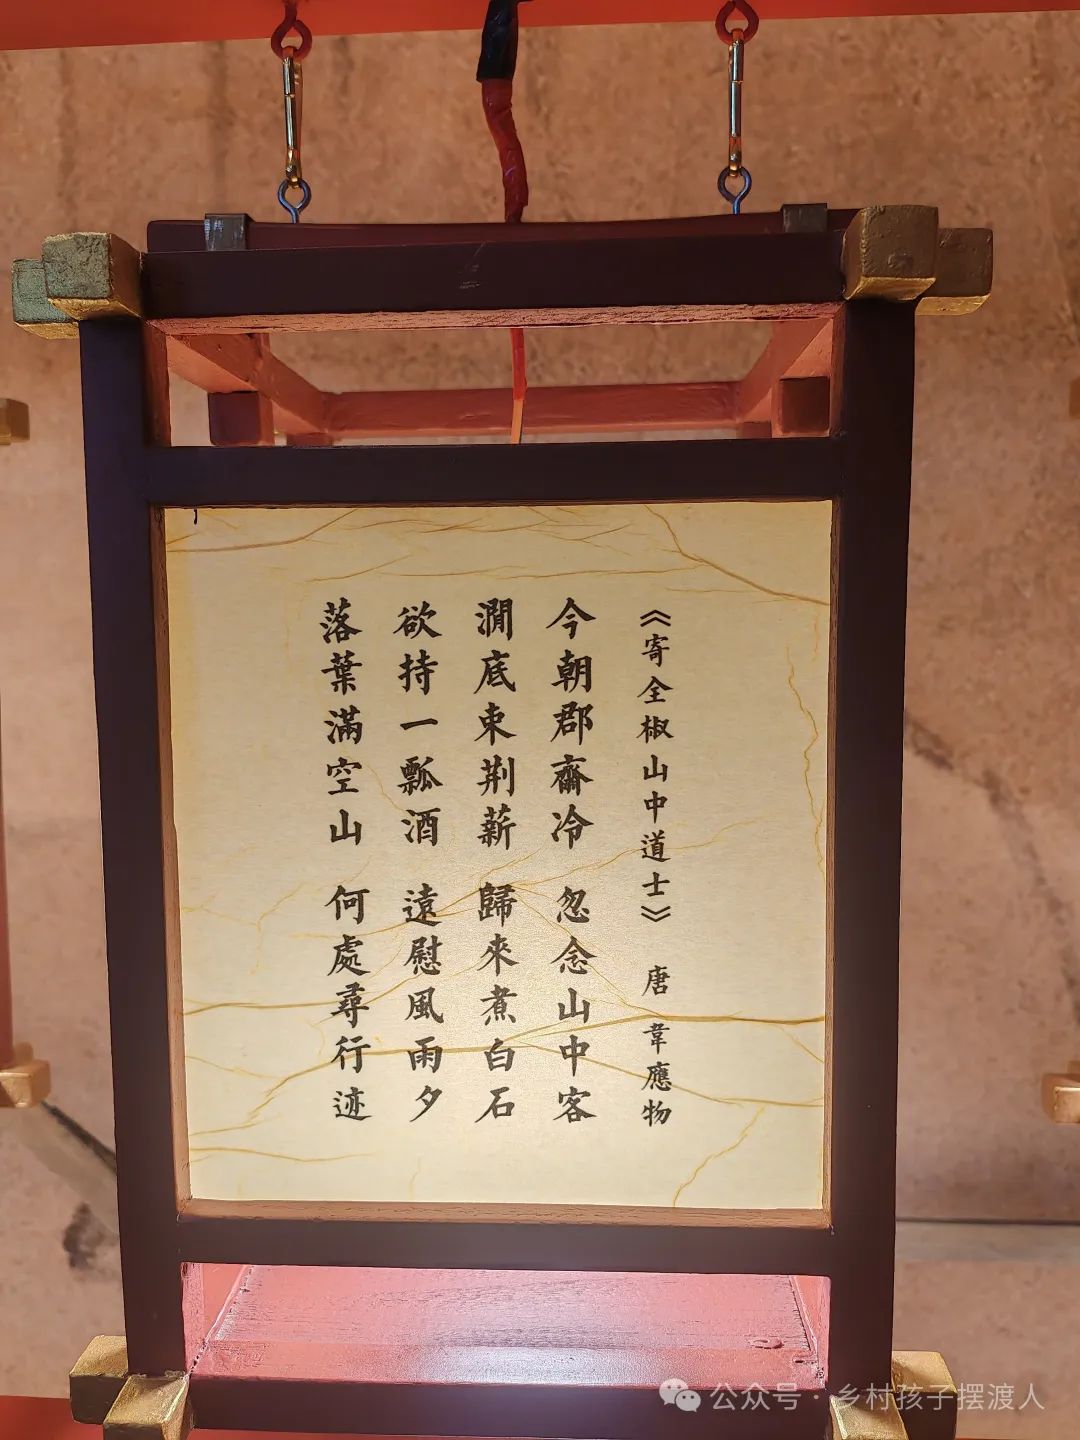 《寄全椒山中道士》 唐 韋應物
今朝郡齋冷 忽念山中客
澗底束荆薪 歸來煮白石
欲持一瓢酒 遠慰風雨夕
落葉滿空山 何處尋行迹
公众号 · 乡村孩子摆渡人